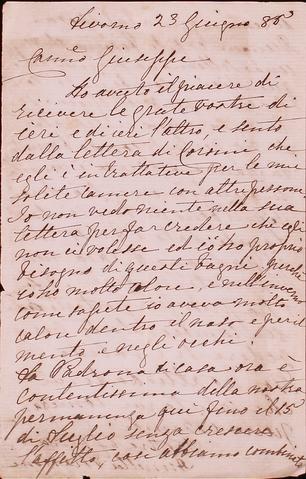 Livorno 23 Giugno 86
Carmo Giuseppe
Ho avuto il piacere di
ricevere le grate vostre di
ieri e di ieri l'altro, e sento
dalla lettera di Corsini che
egli è in trattative per le mie
solite camere con altre persone.
Io non vedo niente nella sua
lettera per far credere che egli
non ci volesse ed io ho proprio
bisogno di questi bagni, perchè
io ho molto calore, e nell'inverno
come sapete io aveva molto
calore dentro il naso e peri
mento, e negli occhi!
La Padrona di casa ora è
contentissima della nostra
permanenza qui fino il 15
di Luglio senza crescere
l'affitto, così abbiamo combinat